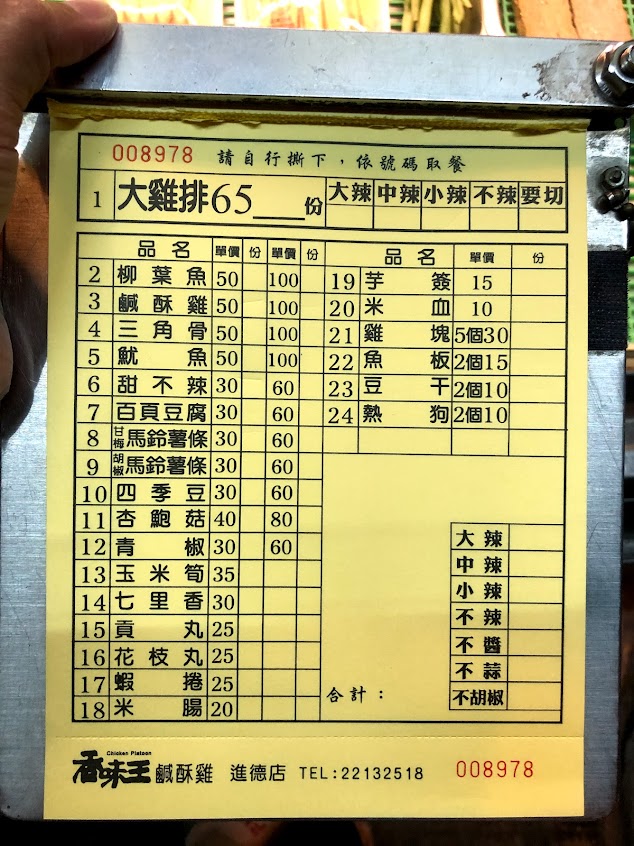 008978 請自行撕下，依號碼取餐
1 大雞排65___份 大辣 中辣 小辣 不辣 要切
品名 單價 份 單價 份
2 柳葉魚 50 100
3 鹹酥雞 50 100
4 三角骨 50 100
5 魷魚 50 100
6 甜不辣 30 60
7 百頁豆腐 30 60
8 甘梅馬鈴薯條 30 60
9 胡椒馬鈴薯條 30 60
10 四季豆 30 60
11 杏鮑菇 40 80
12 青椒 30 60
13 玉米筍 35
14 七里香 30
15 貢丸 25
16 花枝丸 25
17 蝦捲 25
18 米腸 20
品名 單價 份
19 芋簽 15
20 米血 10
21 雞塊 5個30
22 魚板 2個15
23 豆干 2個10
24 熱狗 2個10
大辣
中辣
小辣
不辣
不醬
不蒜
不胡椒
合計：
Chicken Platoon
香味王 鹹酥雞 進德店 TEL:22132518 008978